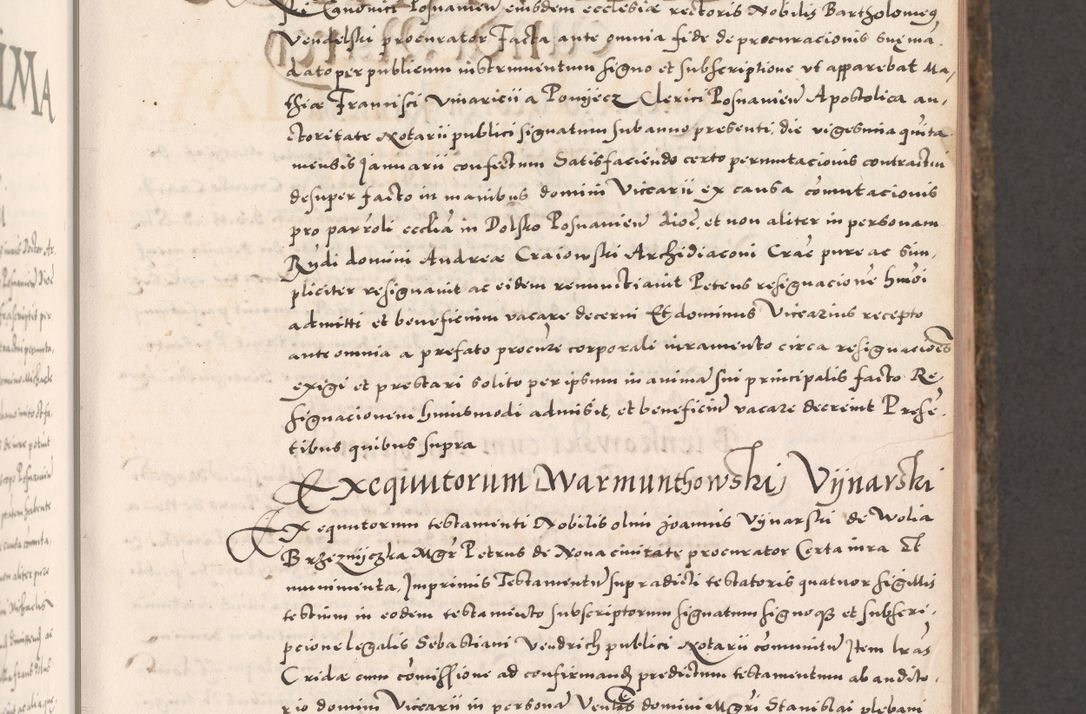 ski Canonici Posnanien eiusdem ecclesiæ rectoris Nobilis Bartholomeus
Vendelski procurator facta ante omnia fide de procuracionis suę man
dato per publicum instrumentum signo et subscriptione ut apparebat Ma,
thiæ Francisci Vinaricii a Ponijecz Clerici Posnanien Apostolica au,
ctoritate Notarii publici signatum sub anno presenti, die vigesima quinta
mensis Januarii confectum Satisfaciendo certo permutacionis contractui
desuper facto in manibus domini Viccarii ex causa comutacionis
pro parroli ecclia in Dolsko Posnanien dioc, et non aliter in personam
Rndi domini Andreæ Craiowski Archidiaconi Crac pure ac sim,
pliciter resignavit ac eidem renunctiavit Petens resignacione hmoi
admitti et beneficium vacare decerni Et dominus Viccarius recepto
ante omnia a prefato procure corporale iuramento circa resignaciones
exigi et prestari solito per ipsum in anima sui principalis facto Re,
signacionem huiusmodi admisit, et beneficiu vacare decrevit Prese,
tibus quibus supra
Exequutorum Warmunthowskij Vijnarski
Exequutorum testamenti Nobilis olim Joannis Vijnarski de Wolia
Brzeznijczka Mgr Petrus de Nova civitate procurator Certa iura Et
munimenta, Inprimis Testamentu supradicti testatoris quatuor sigillis
testium in eodem testamento subscriptorum signatum signoque et subscri,
pcione legalis Sebastiani Vendrich publici Notarii comunitu Item lras
Cridæ cum comissione ad confirmand predictum testamentum ab audito,
rio domini Viccarii in persona Ven̄tis domini Mgri Stanislai plebani